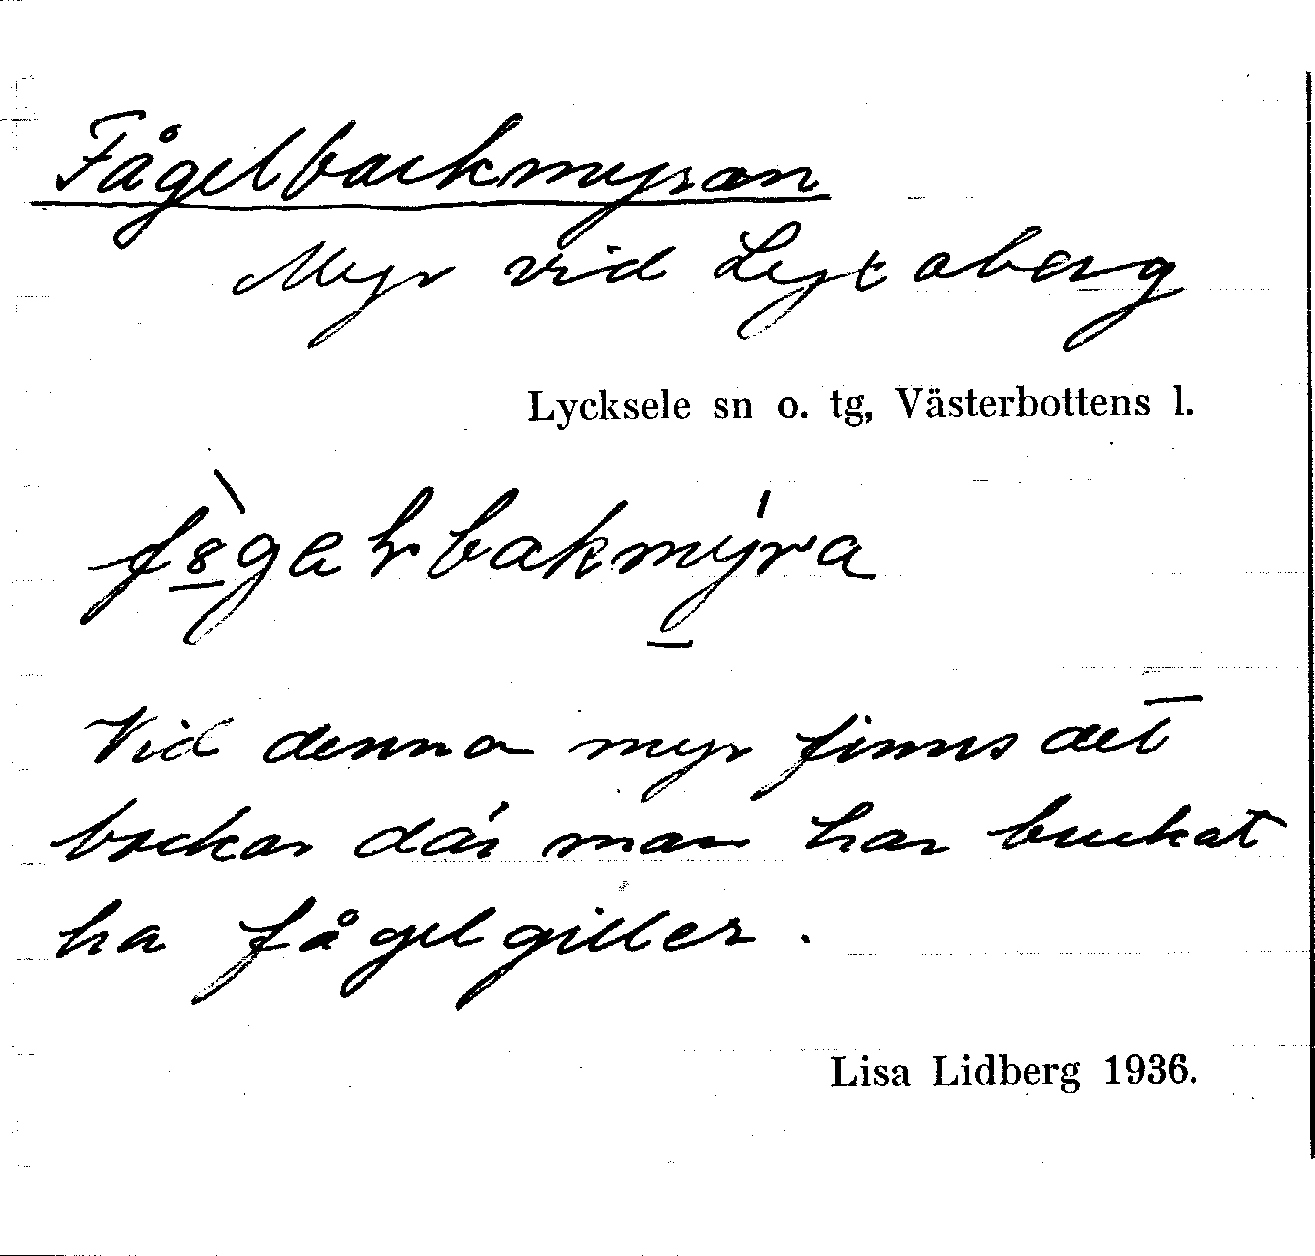 Fågelbackmyran
Myr vid Lyxaberg
Lycksele sn o. tg, Västerbottens l.
Vid denna myr finns det
backar där man har brukat
ha fågelgiller.
Lisa Lidberg 1936.